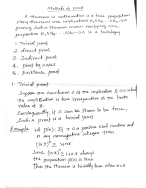 Method of proof
A theorem in mathematics is a true proposition
Many theorems are implications H1∧H2∧...∧Hn → C
proving such a theorem means verifying the
proposition H1∧H2∧...∧Hn → C is a tautology
1. Trivial proof
2. direct proof
3. Indirect proof
4. proof by cases
5. Existence proof
1. Trivial proof
Suppose the conclusion C of the implication is
the implication is true irrespective of the truth
value of
Consequently, if C can be shown to be true,
such a proof is a trivial proof
Example let p(n): If x is a positive real number and
n any nonnegative integer then
(1+x)^n ≥ 1+nx
Since (1+x)^0 ≥ 1+0x always
the proposition p(0) is true
Thus the theorem is trivially true when n=0